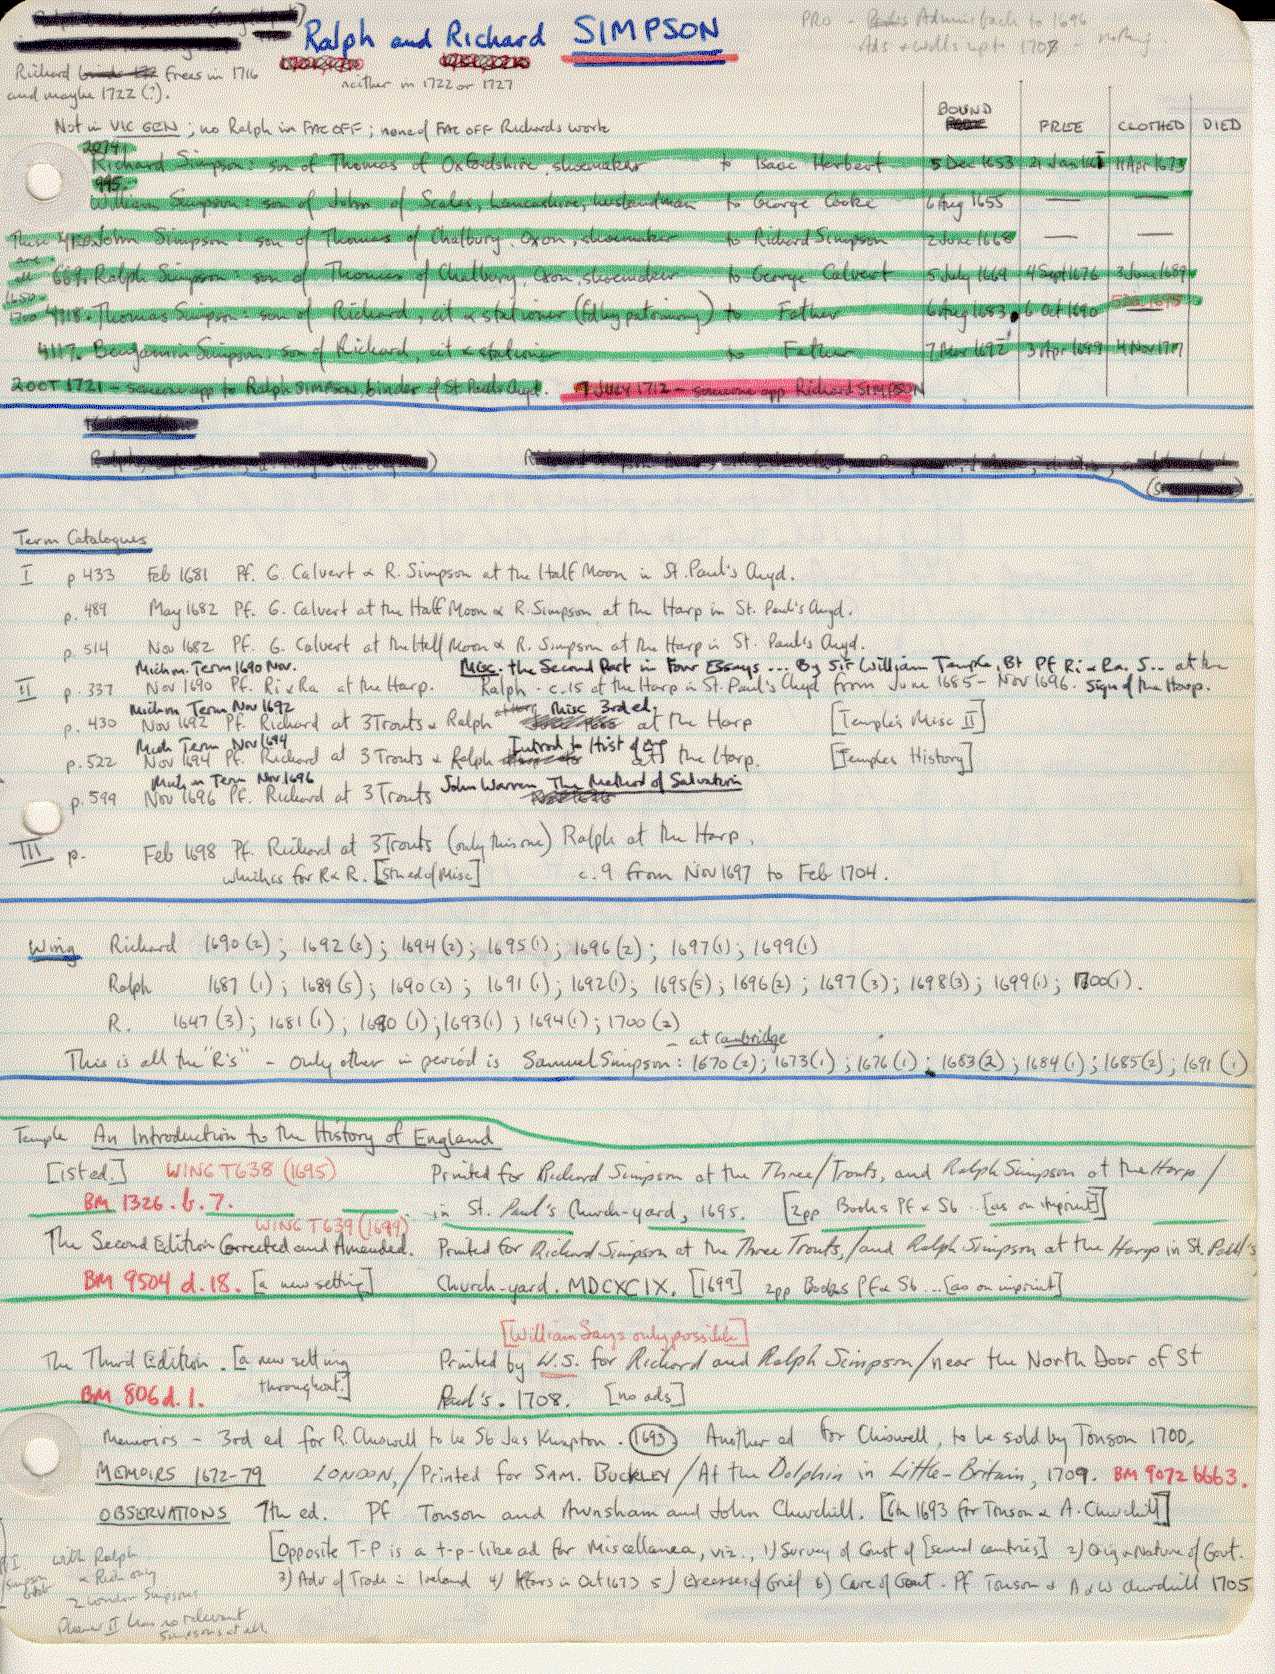 Ralph and Richard SIMPSON
PRO - Admins back to 1696
Ads + wills up to 1708 - nothing
Richard frees in 1716
and maybe 1722 (?).
neither in 1722 or 1727
Not in VIC GEN ; no Ralph in FAC OFF ; none of FAC OFF Richards work
BOUND FREE CLOTHED DIED
2074
Richard Simpson : son of Thomas of Oxfordshire, shoemaker to Isaac Herbert 5 Dec 1653 21 Jan 11 Apr 1673
995.
William Simpson : son of John of Scales, Lancashire, husbandman to George Cooke 6 Aug 1655 — —
These John Simpson : son of Thomas of Chalbury, Oxon, shoemaker to Richard Simpson 2 June 1668 — —
are
all 669. Ralph Simpson : son of Thomas of Chalbury, Oxon, shoemaker to George Calvert 5 July 1669 4 Sept 1676 3 June 1689
1650-
1700 4118. Thomas Simpson : son of Richard, cit & stationer (fd by patrimony) to Father 6 Aug 1683. 6 Oct 1690
4117. Benjamin Simpson : son of Richard, cit & stationer to Father 7 Mar 1692 3 Apr 1699 4 Nov 1717
2 OCT 1721 - someone app to Ralph SIMPSON, binder of St Pauls Chyd. 7 JULY 1712 - someone app Richard SIMPSON
Term Catalogues
I p 433 Feb 1681 Pf. G. Calvert & R. Simpson at the Half Moon in St. Paul's Chyd.
p. 489 May 1682 Pf. G. Calvert at the Half Moon & R. Simpson at the Harp in St. Paul's Chyd.
p. 514 Nov 1682 Pf. G. Calvert at the Half Moon & R. Simpson at the Harp in St. Paul's Chyd.
Michm. Term 1690 Nov. Misc. the Second Part in Four Essays ... By Sir William Temple, Bt Pf Ri & Ra. S... at the
II p. 337 Nov 1690 Pf. Ri & Ra at the Harp. Ralph - c.15 at the Harp in St. Paul's Chyd from June 1685 - Nov 1696. Sign of the Harp.
Michm Term Nov 1692
p. 430 Nov 1692 Pf. Richard at 3 Trouts & Ralph Misc 3rd ed. at the Harp [Temple's Misc II]
Mich Term Nov 1694
p. 522 Nov 1694 Pf. Richard at 3 Trouts & Ralph Introd to Hist of at the Harp. [Temples History]
Mich m Term Nov 1696
p. 599 Nov 1696 Pf. Richard at 3 Trouts John Warren The Method of Salvation
III p. Feb 1698 Pf. Richard at 3 Trouts (only this one) Ralph at the Harp.
which is for R & R. [5th ed of Misc] c. 9 from Nov 1697 to Feb 1704.
Wing Richard 1690 (2) ; 1692 (2) ; 1694 (2) ; 1695 (1) ; 1696 (2) ; 1697 (1) ; 1699 (1)
Ralph 1687 (1) ; 1689 (5) ; 1690 (2) ; 1691 (1) ; 1692 (1) ; 1695 (5) ; 1696 (2) ; 1697 (3) ; 1698 (3) ; 1699 (1) ; 1700 (1).
R. 1647 (3) ; 1681 (1) ; 1680 (1) ; 1693 (1) ; 1694 (1) ; 1700 (2)
- at Cambridge
This is all the "R's" - Only other in period is Samuel Simpson : 1670 (2) ; 1673 (1) ; 1676 (1) ; 1683 (2) ; 1684 (1) ; 1685 (2) ; 1691 (1)
Temple An Introduction to the History of England
[1st ed.] WING T638 (1695) Printed for Richard Simpson at the Three / Trouts, and Ralph Simpson at the Harp /
BM 1326. b. 7. in St. Paul's Church-yard, 1695. [2pp Books Pf & Sb .. [as on imprint]]
WING T639 (1699)
The Second Edition Corrected and Amended. Printed for Richard Simpson at the Three Trouts, / and Ralph Simpson at the Harp in St. Paul's
BM 9504 d. 18. [a new setting] Church-yard. MDCXCIX. [1699] 2pp Books Pf & Sb ... [as on imprint]
[William Says only possible]
The Third Edition. [a new setting Printed by W.S. for Richard and Ralph Simpson / near the North Door of St
throughout.]
BM 806 d. 1. Paul's. 1708. [no ads]
Memoirs - 3rd ed for R. Chiswell to be Sb Jas Knapton. 1693 Another ed for Chiswell, to be sold by Tonson 1700.
MEMOIRS 1672-79 LONDON, / Printed for SAM. BUCKLEY / At the Dolphin in Little-Britain, 1709. BM 9072 bbb3.
OBSERVATIONS 7th ed. Pf Tonson and Awnsham and John Churchill. [6th 1693 for Tonson & A. Churchill]
[Opposite T-P is a t-p-like ad for Miscellanea, viz., 1) Survey of Const of [several countries] 2) Orig & Nature of Govt.
3) Adv of Trade in Ireland 4) Affairs in Oct 1673 5) Excesses of Grief 6) Cure of Gout. Pf Tonson & A & W Churchill 1705
I with Ralph
& Rich only
2 London Simpsons
Plomer II has no relevant
Simpsons at all